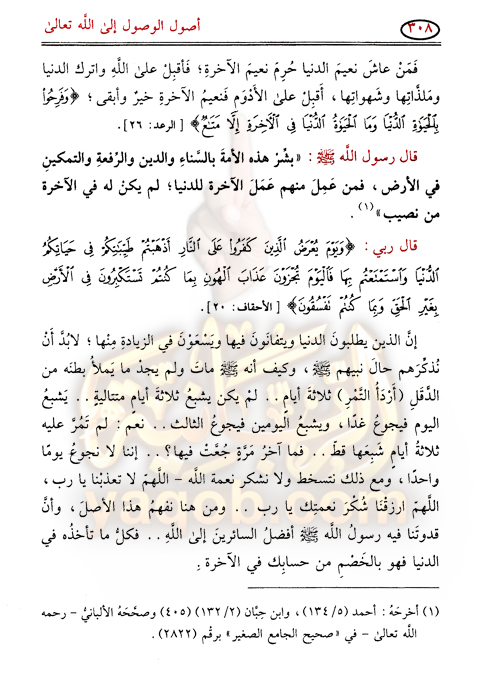 ٣٠٨
أصول الوصول إلى اللَّه تعالى
فَمَنْ عاشَ نعيمَ الدنيا حُرِمَ نعيمَ الآخرةِ؛ فَأقبِلْ على اللَّهِ واترك الدنيا
ومَلذَّاتِها وشهواتِها، أَقبِلْ على الأَدْوَمِ فَنعيمُ الآخرةِ خيرٌ وأبقى؛ ﴿وَفَرِحُوا۟
بِٱلْحَيَوٰةِ ٱلدُّنْيَا وَمَا ٱلْحَيَوٰةُ ٱلدُّنْيَا فِى ٱلْـَٔاخِرَةِ إِلَّا مَتَـٰعٌ﴾ [الرعد: ٢٦].
قال رسول اللَّه ﷺ: «بشِّرْ هذه الأمةَ بالسَّناءِ والدين والرِّفعةِ والتمكينِ
في الأرضِ، فمن عَمِلَ منهم عَمَلَ الآخرة للدنيا؛ لم يكنْ له في الآخرة
من نصيب»(١).
قال ربي: ﴿وَيَوْمَ يُعْرَضُ ٱلَّذِينَ كَفَرُوا۟ عَلَى ٱلنَّارِ أَذْهَبْتُمْ طَيِّبَـٰتِكُمْ فِى حَيَاتِكُمُ
ٱلدُّنْيَا وَٱسْتَمْتَعْتُم بِهَا فَٱلْيَوْمَ تُجْزَوْنَ عَذَابَ ٱلْهُونِ بِمَا كُنتُمْ تَسْتَكْبِرُونَ فِى ٱلْأَرْضِ
بِغَيْرِ ٱلْحَقِّ وَبِمَا كُنتُمْ تَفْسُقُونَ﴾ [الأحقاف: ٢٠].
إنَّ الذين يطلبونَ الدنيا ويتفانَونَ فيها ويَسعَوْنَ في الزيادةِ مِنْها؛ لابُدَّ أَنْ
نُذكِّرَهم حالَ نبيهم ﷺ، وكيف أنه ﷺ ماتَ ولم يجدْ ما يَملأُ بطنَه من
الدَّقَلِ (أَرْدَأُ التَّمْرِ) ثلاثةَ أيامٍ.. لمْ يكن يشبعُ ثلاثةَ أيامٍ متتاليةٍ.. يَشبعُ
اليوم فيجوعُ غدًا، ويشبعُ اليومين فيجوعُ الثالث.. نعم: لم تَمُرَّ عليه
ثلاثةُ أيامٍ شَبِعَها قطّ.. فما آخرُ مَرَّةٍ جُعْتَ فيها؟.. إننا لا نجوعُ يومًا
واحدًا، ومع ذلك نتسخط ولا نشكر نعمة اللَّه - اللَّهمّ لا تعذبْنا يا رب،
اللَّهمّ ارزقْنا شُكْرَ نعمتِك يا رب.. ومن هنا نفهمُ هذا الأصلَ، وأنَّ
قدوتَنا فيه رسولُ اللَّه ﷺ أفضلُ السائرينَ إلى اللَّهِ.. فكلُّ ما تأخذُه في
الدنيا فهو بالخَصْمِ من حسابِك في الآخرة.
(١) أخرجَهُ: أحمد (٥/ ١٣٤)، وابن حِبَّان (٢/ ١٣٢) (٤٠٥) وصحَّحَهُ الألبانيُّ - رحمه
اللَّه تعالى - في «صحيح الجامع الصغير» برقْم (٢٨٢٢).
yaqob.com